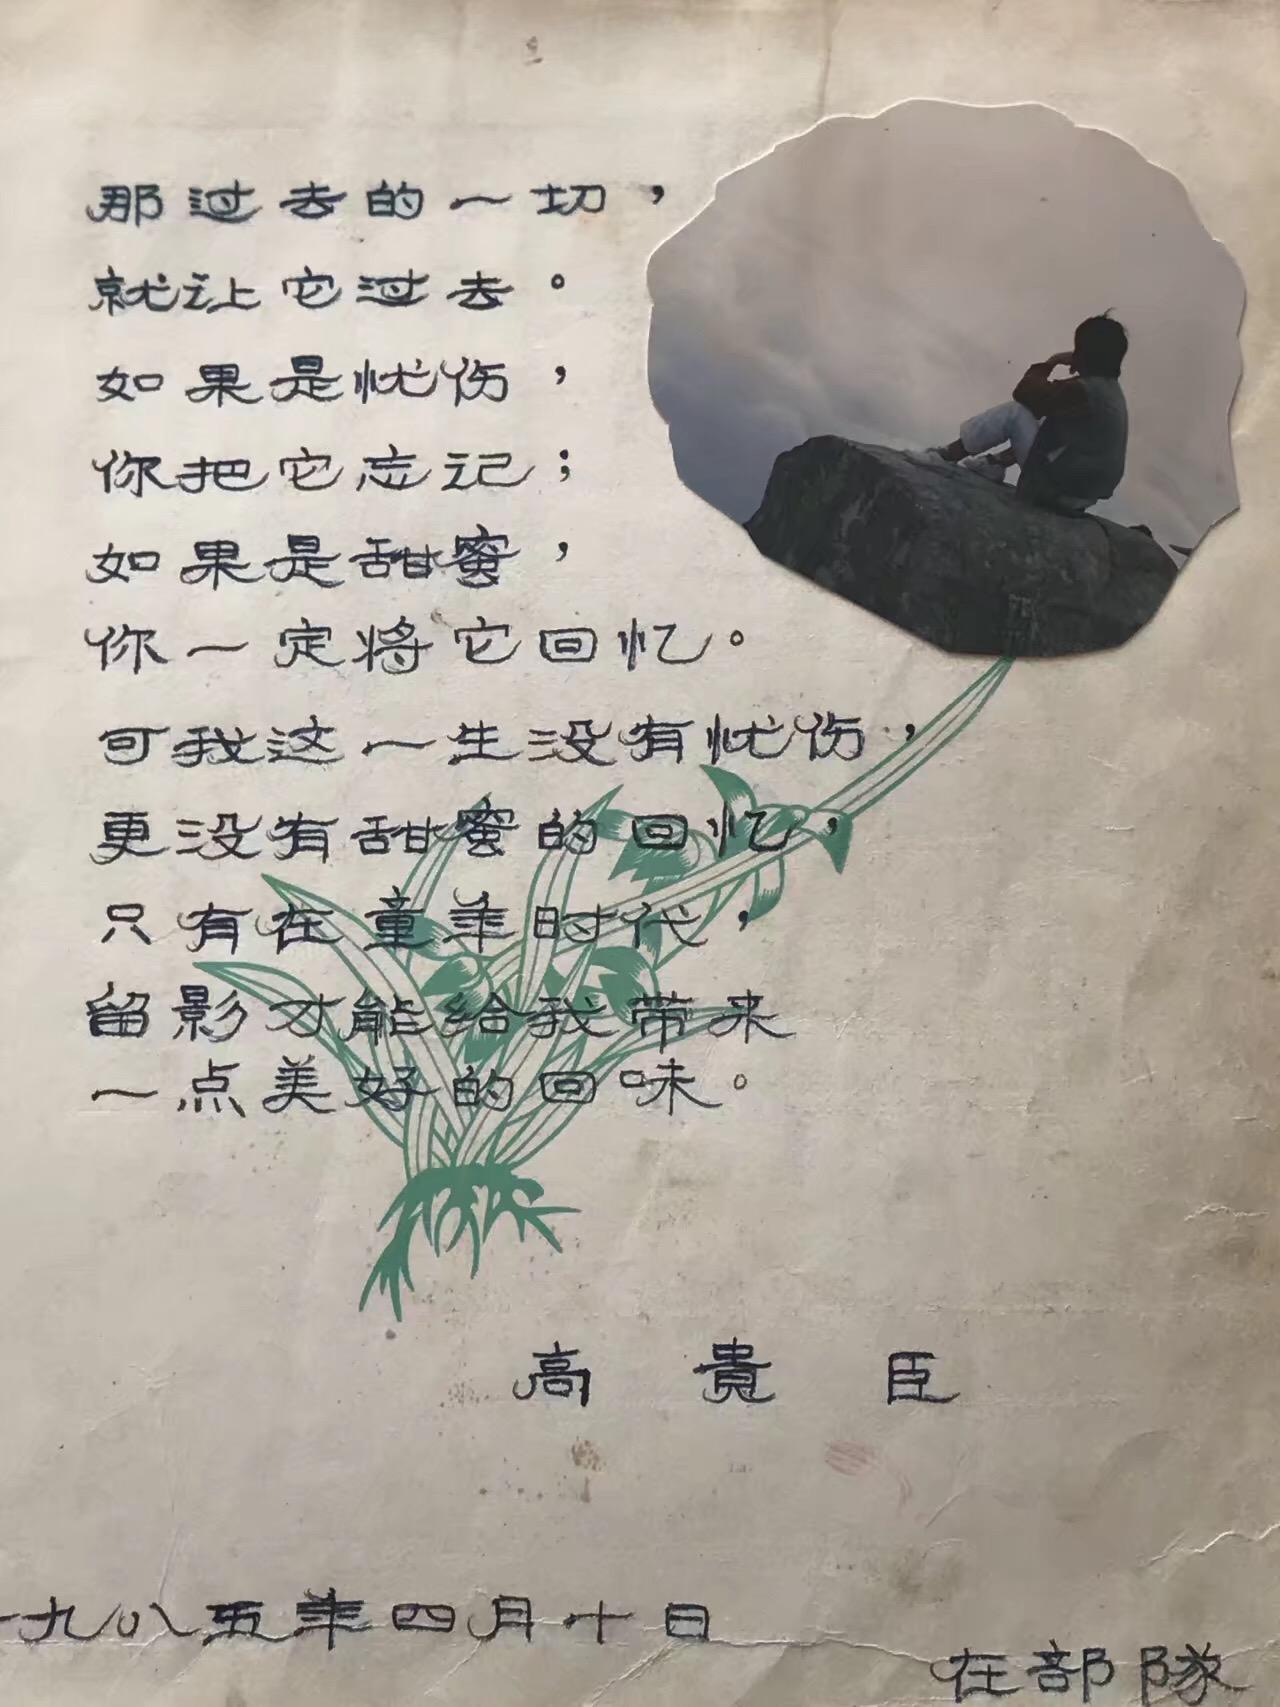 那过去的一切，
就让它过去。
如果是忧伤，
你把它忘记；
如果是甜蜜，
你一定将它回忆。
可我这一生没有忧伤，
更没有甜蜜的回忆，
只有在童年时代，
留影才能给我带来
一点美好的回味。
高貴臣
一九八五年四月十日
在部隊